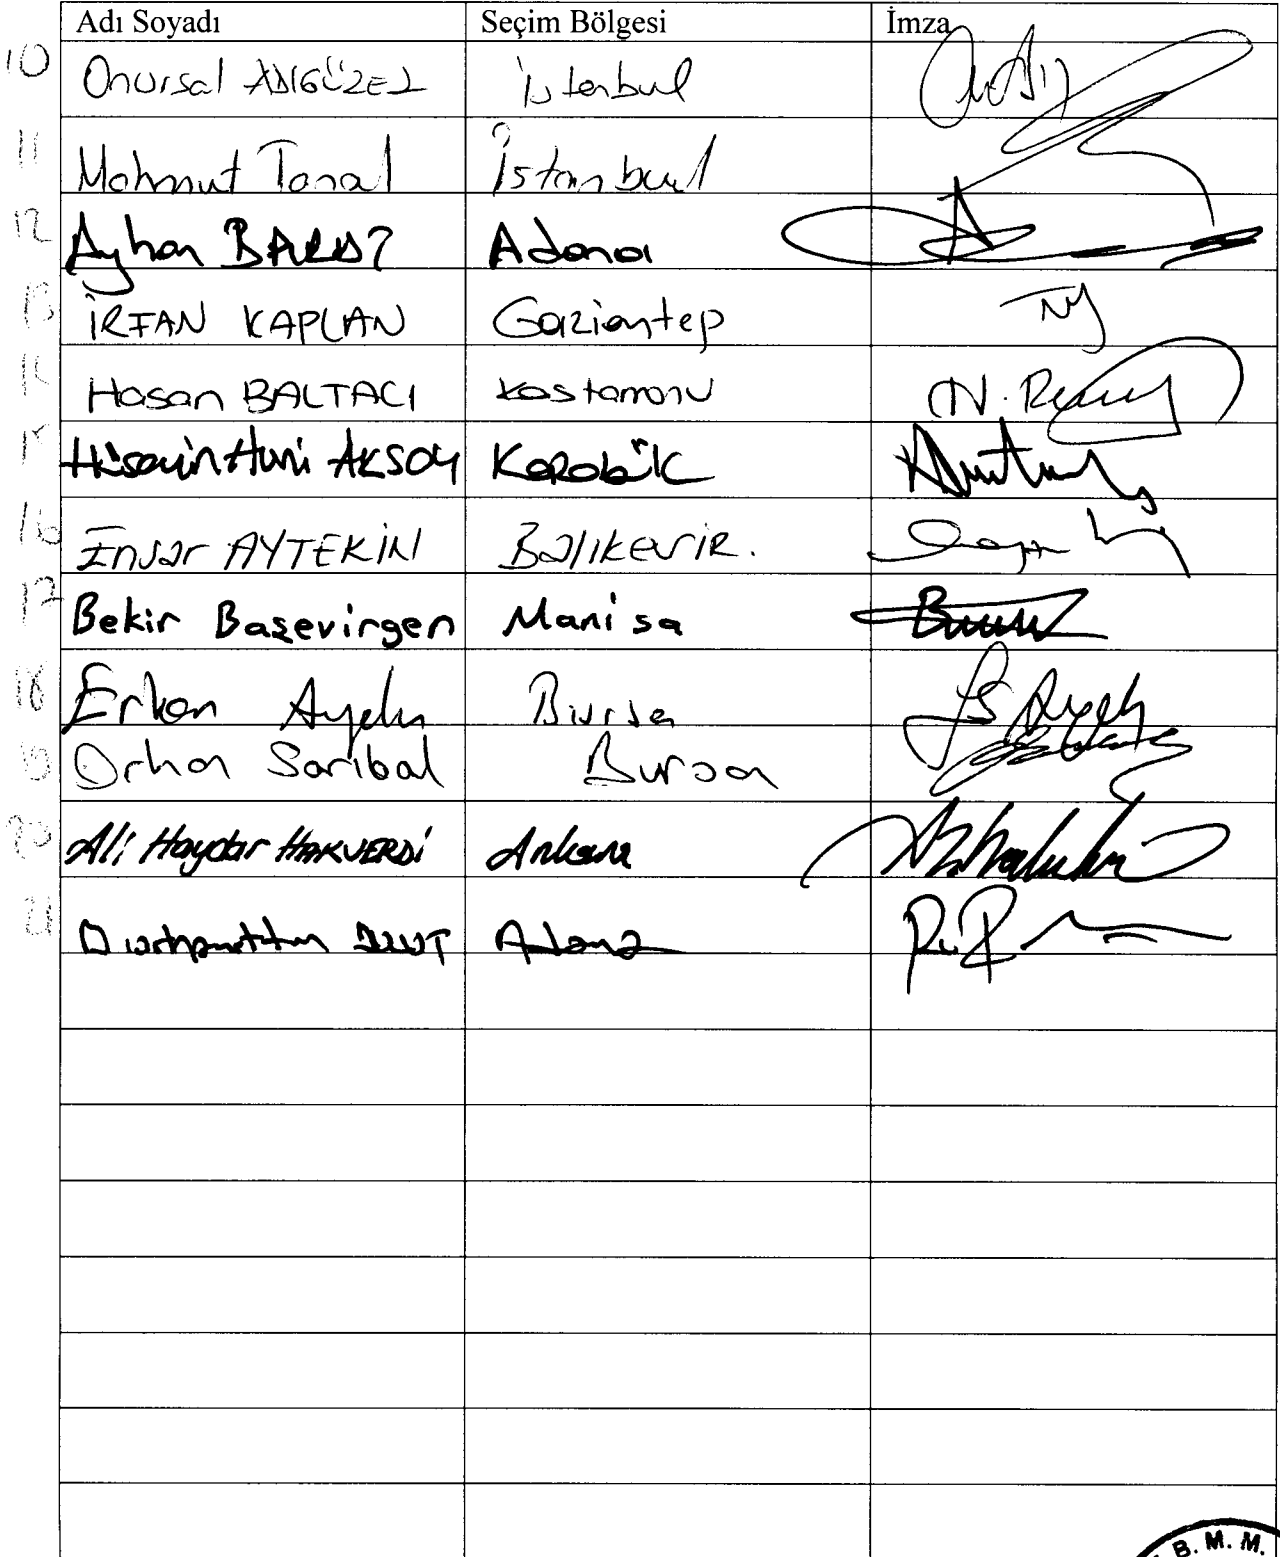 Adı Soyadı Seçim Bölgesi İmza
10 Onursal ADIGÜZEL İstanbul
11 Mahmut Tanal İstanbul
12 Ayhan BARUT Adana
13 İRFAN KAPLAN Gaziantep
Hasan BALTACI Kastamonu
Hüseyin Avni AKSOY Karabük
16 Ensar AYTEKİN Balıkesir.
17 Bekir Başevirgen Manisa
18 Erkan Aydın Bursa
19 Orhan Sarıbal Bursa
20 Ali Haydar HAKVERDİ Ankara
21 BULUT Adana
B. M. M.